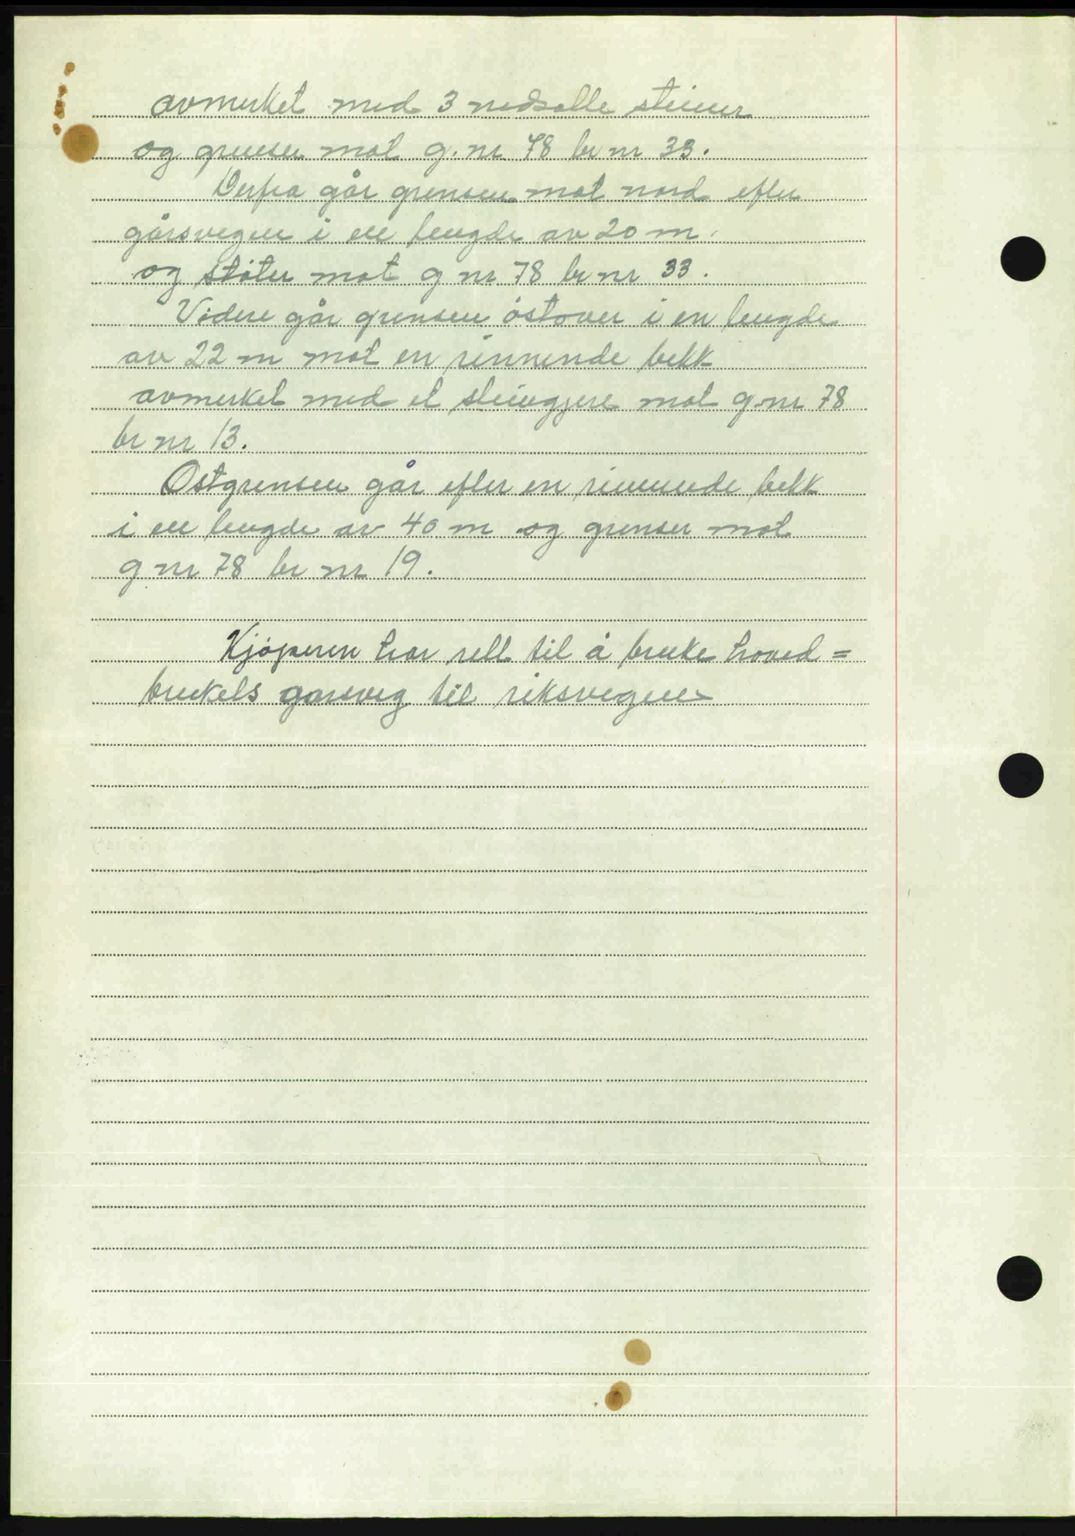 avmerket med 3 nedsatte steiner
og grenser mot g. nr 78 br nr 33.
Derfra går grensen mot nord efter
gårsvegen i en lengde av 20 m.
og støter mot g nr 78 br nr 33.
Videre går grensen østover i en lengde
av 22 m mot en rinnende bekk
avmerket med et steingjere mot g. nr 78
br nr 13.
Østgrensen går efter en rinnende bekk
i en lengde av 40 m og grenser mot
g nr 78 br nr 19.
Kjøperen har rett til å bruke hoved=
brukets garsveg til riksvegen